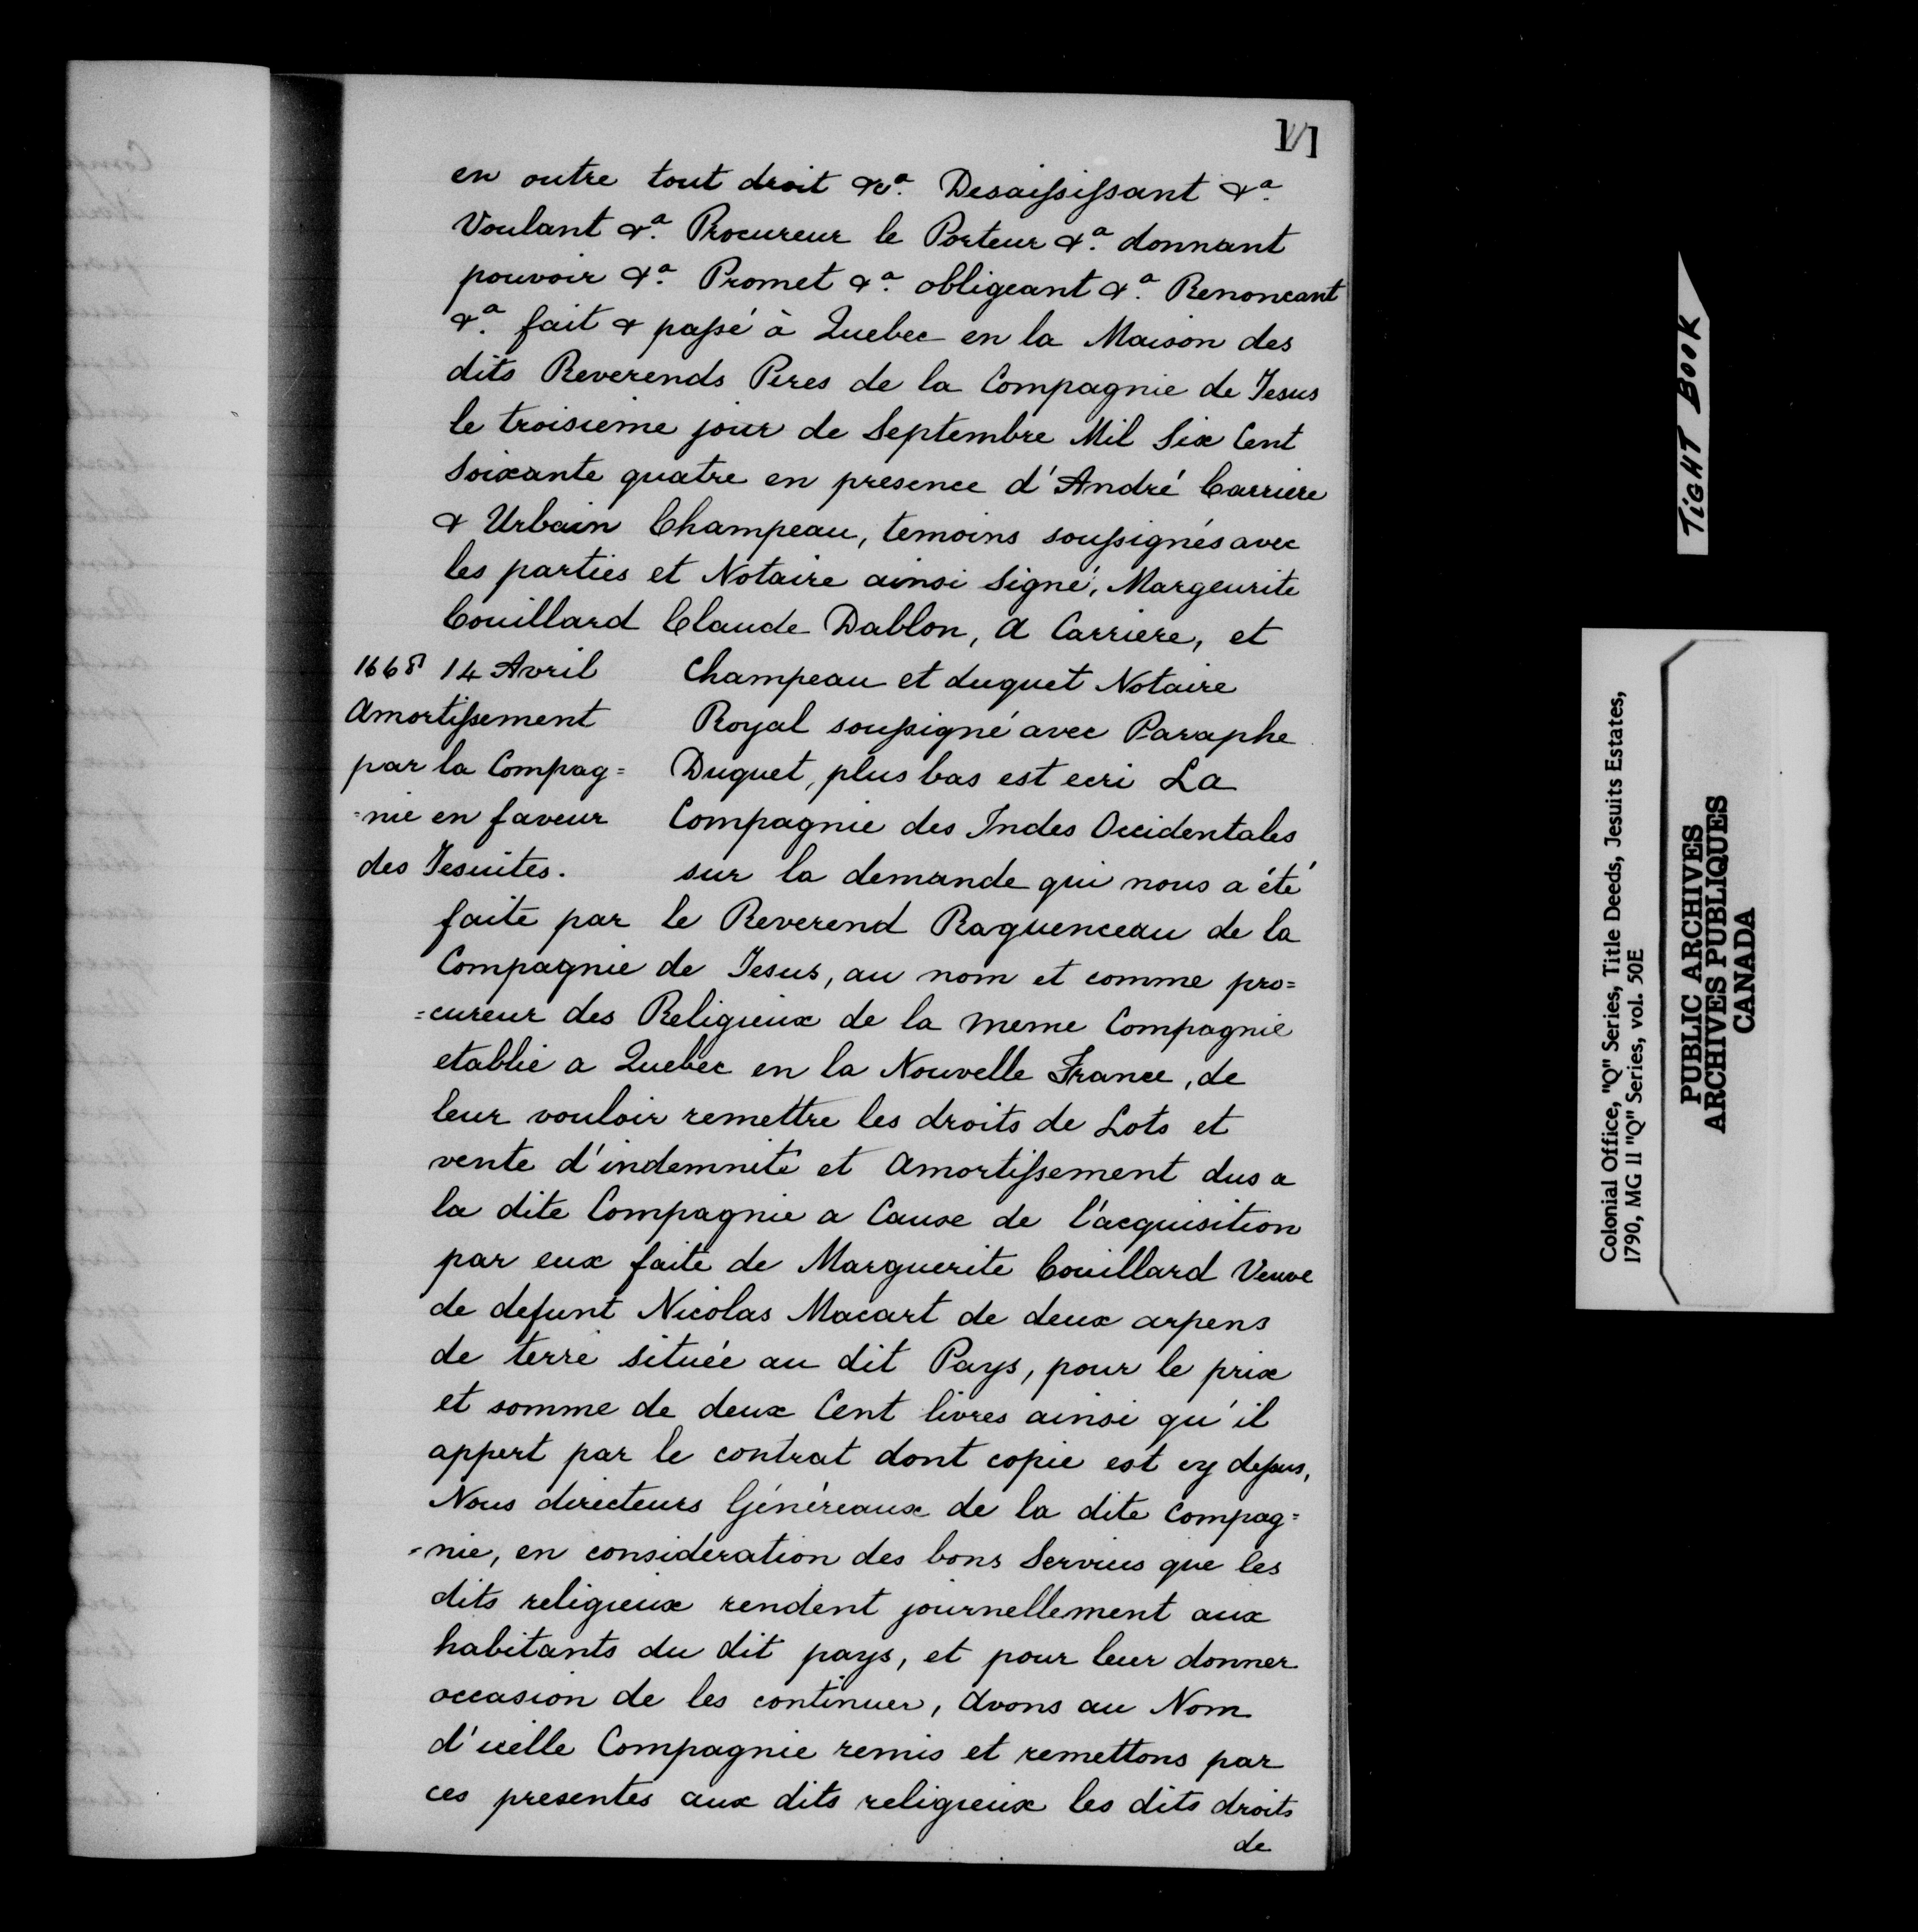 en outre tout droit &a. Desaississant &a.
Voulant &a. Procureur le Porteur &a. donnant
pouvoir &a. Promet &a. obligeant &a. Renoncant
&a. fait & passé à Quebec en la Maison des
dits Reverends Peres de la Compagnie de Jesus
le troisieme jour de Septembre Mil Six Cent
Soixante quatre en presence d'André Carriere
& Urbain Champeau, temoins soussignés avec
les parties et Notaire ainsi Signé, Margeurite
Couillard Claude Dablon, A Carriere, et
Champeau et duquet Notaire
Royal soussigné avec Paraphe
Duquet, plus bas est ecri La
Compagnie des Indes Occidentales
sur la demande qui nous a été
1668 14 Avril
Amortissement
par la Compag=
=nie en faveur
des Jesuites.
faite par le Reverend Raguenceau de la
Compagnie de Jesus, au nom et comme pro=
=cureur des Religieux de la meme Compagnie
etablie a Quebec en la Nouvelle France, de
leur vouloir remettre les droits de Lots et
vente d'indemnité et Amortissement dus a
la dite Compagnie a Cause de l'acquisition
par eux faite de Marguerite Couillard Veuve
de defunt Nicolas Macart de deux arpens
de terre située au dit Pays, pour le prix
et somme de deux Cent livres ainsi qu'il
appert par le contrat dont copie est cy dessus,
Nous directeurs Généreaux de la dite Compag=
=nie, en consideration des bons Services que les
dits religieux rendent journellement aux
habitants du dit pays, et pour leur donner
occasion de les continuer, Avons au Nom
d'icelle Compagnie remis et remettons par
ces presentes aux dits religieux les dits droits
de
TIGHT BOOK
Colonial Office, "Q" Series, Title Deeds, Jesuits Estates,
1790, MG 11 "Q" Series, vol. 50E
PUBLIC ARCHIVES
ARCHIVES PUBLIQUES
CANADA